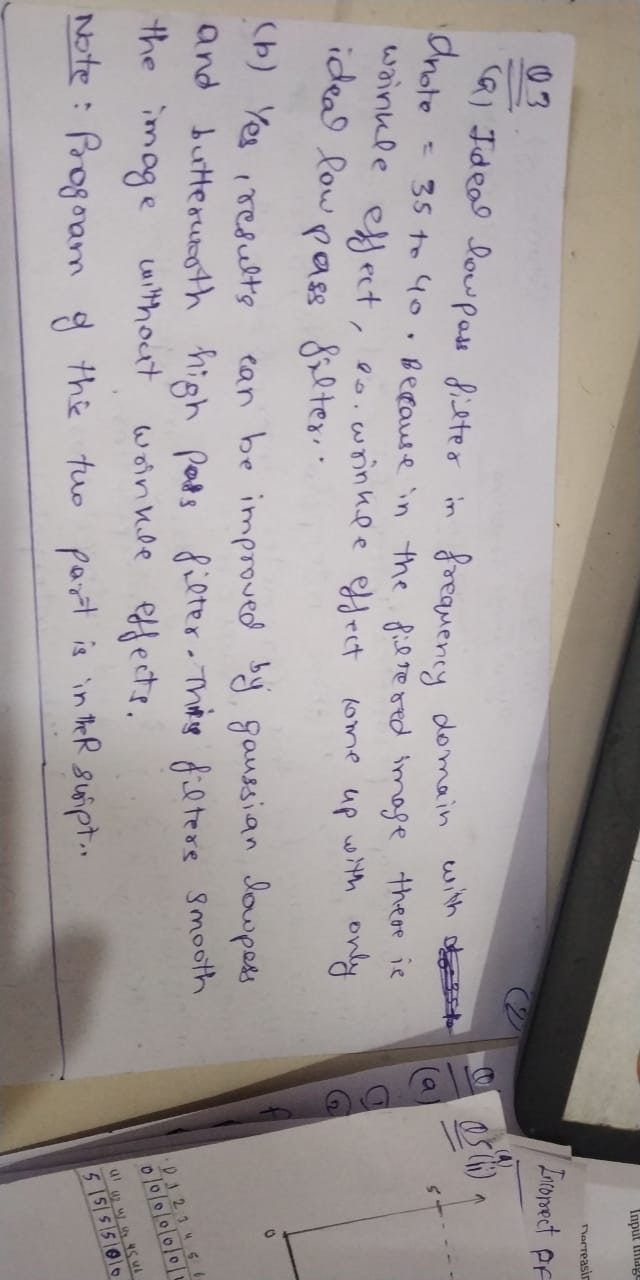 (2)
Q3
(a) Ideal lowpass filter in frequency domain with
dnoto = 35 to 40. Because in the filtered image there is
wrinkle effect, so. wrinkle effect come up with only
ideal low pass filter.
(b) Yes, results can be improved by gaussian lowpass
and butterworth high pass filter. This filters smooth
the image without wrinkle effects.
Note: Program of this two part is in the R script..
Q
(a)
Q5 (a)
(ii)
Incorrect
5
0
0 1 2 3 4 5 6
0 0 0 0 0 0
5 5 5 5 0 0
Input imag